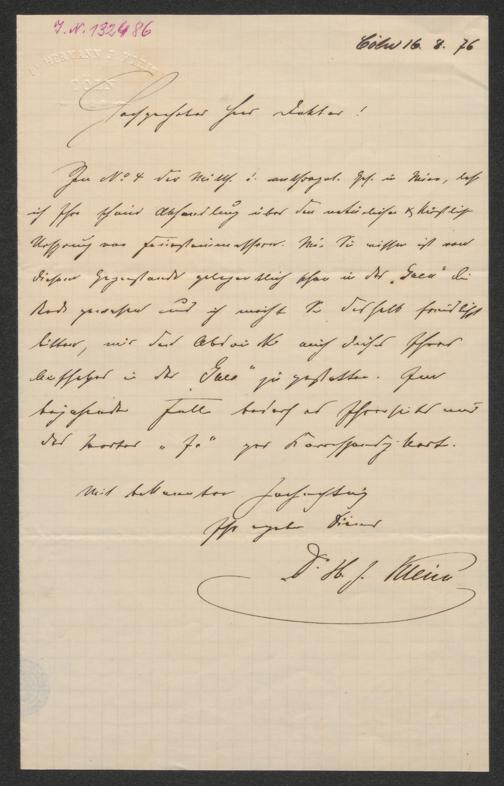 J.N. 132486
Cöln 16. 8. 76
Dr HERMANN J. KLEIN
CÖLN
Hochgeehrter Herr Doktor!
In No 4 der Mitth. d. anthropol. Ges. in Wien, las
ich Ihre schöne Abhandlung über den natürlichen & künstlich
Ursprung von Feuersteinmessern. Wie Sie wissen ist von
diesem Gegenstande gelegentlich schon in der „Gaea" die
Rede gewesen und ich möchte Sie deshalb freundlichst
bitten, mir den Abdruck auch dieses Ihres
Aufsatzes in der „Gaea" zu gestatten. Im
bejahenden Falle bedarf es Ihrerseits nur
des Wortes „Ja" per Correspondzkart.
Mit bekannter Hochachtung
Ihr ergebr Diener
Dr H. J. Klein